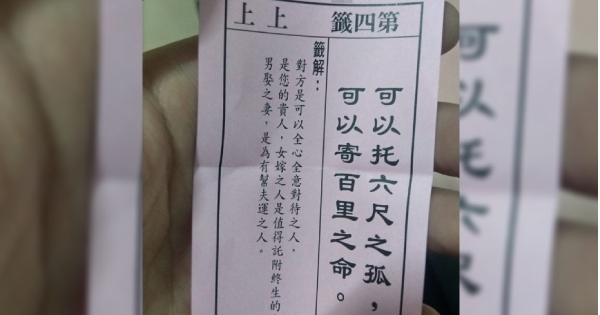 第四籤 上上
可以托六尺之孤，
可以寄百里之命。
籤解：
對方是可以全心全意對待之人，
是您的貴人，女嫁之人是值得託附終生的
男娶之妻，是為有幫夫運之人。
可以托六尺